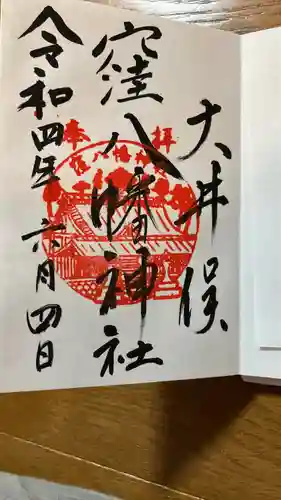 大井俣
窪八幡神社
令和四年六月四日
奉拝